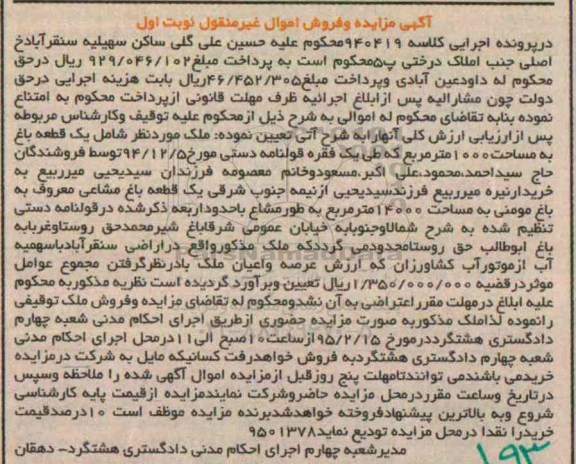 آگهی مزایده وفروش اموال غیرمنقول نوبت اول
درپرونده اجرایی کلاسه ۹۴۰۴۱۹محکوم علیه حسین علی گلی ساکن سهیلیه سنقرآبادخ
اصلی جنب املاک درختی پ۵محکوم است به پرداخت مبلغ۹۲۹/۰۴۶/۱۰۲ ریال درحق
محکوم له داودعین آبادی وپرداخت مبلغ۴۶/۴۵۲/۳۰۵ریال بابت هزینه اجرایی درحق
دولت چون مشارالیه پس ازابلاغ اجرائیه ظرف مهلت قانونی ازپرداخت محکوم به امتناع
نموده بنابه تقاضای محکوم له اموالی به شرح ذیل ازمحکوم علیه توقیف وکارشناس مربوطه
پس ازارزیابی ارزش کلی آنهارابه شرح آتی تعیین نموده: ملک موردنظر شامل یک قطعه باغ
به مساحت۱۰۰۰مترمربع که طی یک فقره قولنامه دستی مورخ۹۴/۱۲/۵توسط فروشندگان
حاج سیداحمد،محمود،علی اکبر،مسعودوخانم معصومه فرزندان سیدیحیی میرربیع به
خریدارنیره میرربیع فرزندسیدیحیی ازنیمه جنوب شرقی یک قطعه باغ مشاعی معروف به
باغ مومنی به مساحت ۱۴۰۰۰مترمربع به طورمشاع باحدوداربعه ذکرشده درقولنامه دستی
تنظیم شده به شرح شمالاوجنوبابه خیابان عمومی شرقاباغ شیرمحمدحق روستاوغربابه
باغ ابوطالب حق روستامحدودمی گرددکه ملک مذکورواقع دراراضی سنقرآبادباسهمیه
آب ازموتورآب کشاورزان که ارزش عرصه واعیان ملک بادرنظرگرفتن مجموع عوامل
موثردرقضیه ۱/۳۵۰/۰۰۰/۰۰۰ریال تعیین وبرآورد گردیده است نظریه مذکوربه محکوم
علیه ابلاغ درمهلت مقرراعتراضی به آن نشدومحکوم له تقاضای مزایده وفروش ملک توقیفی
رانموده لذاملک مذکوربه صورت مزایده حضوری ازطریق اجرای احکام مدنی شعبه چهارم
دادگستری هشتگرددرمورخ ۹۵/۲/۱۵ازساعت۱۰صبح الی۱۱درمحل اجرای احکام مدنی
شعبه چهارم دادگستری هشتگردبه فروش خواهدرفت کسانیکه مایل به شرکت درمزایده
خریدمی باشندمی توانندتامهلت پنج روزقبل ازمزایده اموال آگهی شده را ملاحظه وسپس
درتاریخ وساعت مقرردرمحل مزایده حاضروشرکت نمایندمزایده ازقیمت پایه کارشناسی
شروع وبه بالاترین پیشنهادفروخته خواهدشدبرنده مزایده موظف است ۱۰درصدقیمت
خریدرا نقدا درمحل مزایده تودیع نماید۹۵۰۱۳۷۸
مدیرشعبه چهارم اجرای احکام مدنی دادگستری هشتگرد– دهقان
۱۹۳